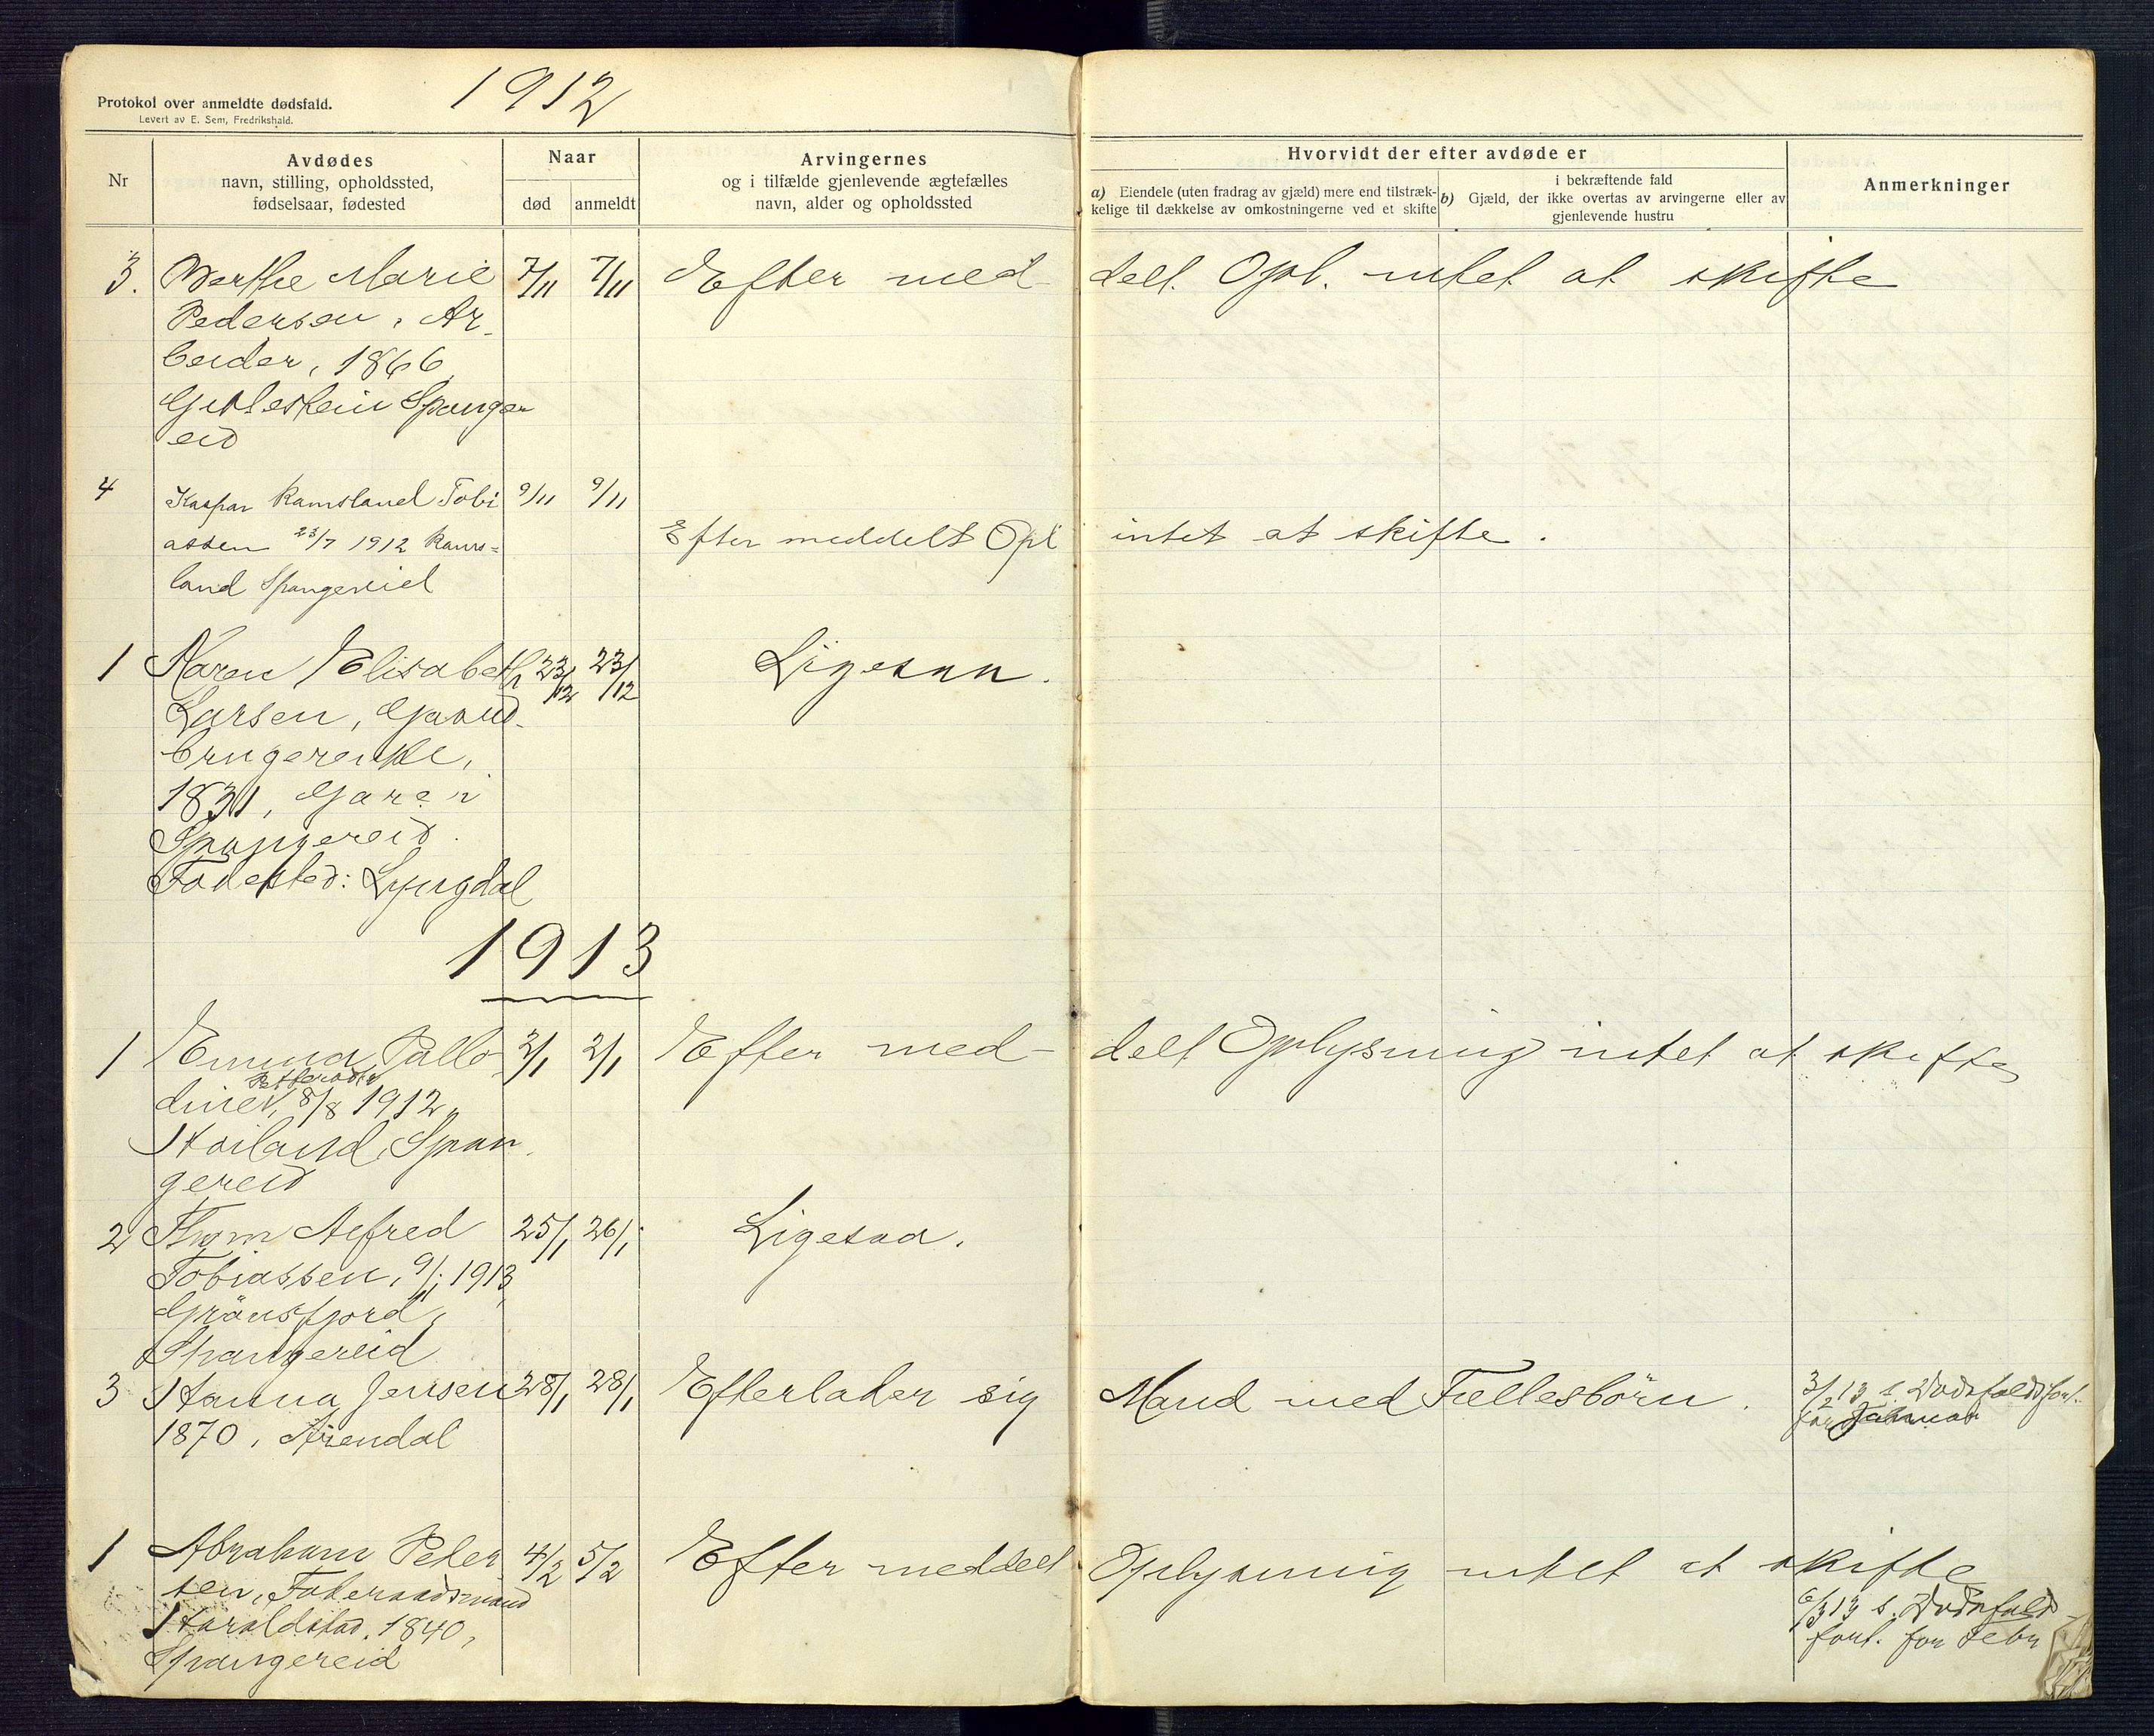 Protokol over anmeldte dødsfald.
Levert av E. Sem, Fredrikshald.
1912
Nr
Avdødes
navn, stilling, opholdssted,
fødselsaar, fødested
Naar
død
anmeldt
Arvingernes
og i tilfælde gjenlevende ægtefælles
navn, alder og opholdssted
Hvorvidt der efter avdøde er
a) Eiendele (uten fradrag av gjæld) mere end tilstræk-
kelige til dækkelse av omkostningerne ved et skifte
i bekræftende fald
b) Gjæld, der ikke overtas av arvingerne eller av
gjenlevende hustru
Anmerkninger
3. Berthe Marie 7/11 7/11 Efter med delt. Opl. intet at skifte
Pedersen, Ar-
beider, 1866,
Spanger
eid
4 Kaspar Ramsland Tobi 9/11 9/11
assen 23/7 1912 Rams= Efter meddelt Opl intet at skifte.
land Spangereid
1 Karen Elisabeth 23/12 23/12 Ligesaa.
Larsen, Gaard-
brugerenke,
1831, Gare i
Spangereid.
Fødested: Lyngdal
1913
1 Emma Pallo 2/1 2/1 Efter med- delt Oplysning intet at skifte
Pettersdtr
dine, 8/8 1912,
Høiland, Span
gereid
2 Thom Alfred 25/1 26/1 Ligesaa.
Tobiassen, 9/1 1913,
Grönsfjord,
Spangereid
3 Hanna Jensen 28/1 28/1 Efterlader sig Mand med Fællesbörn. 3/2 13 s. Dødsfaldsforl.
1870, Arendal for Januar
1 Abraham Peder 4/2 5/2 Efter meddelt Oplysning intet at skifte
sen, Føderaadsmand 6/3 13 s. Dødsfald-
Haraldstad, 1840, forl. for Febr
Spangereid